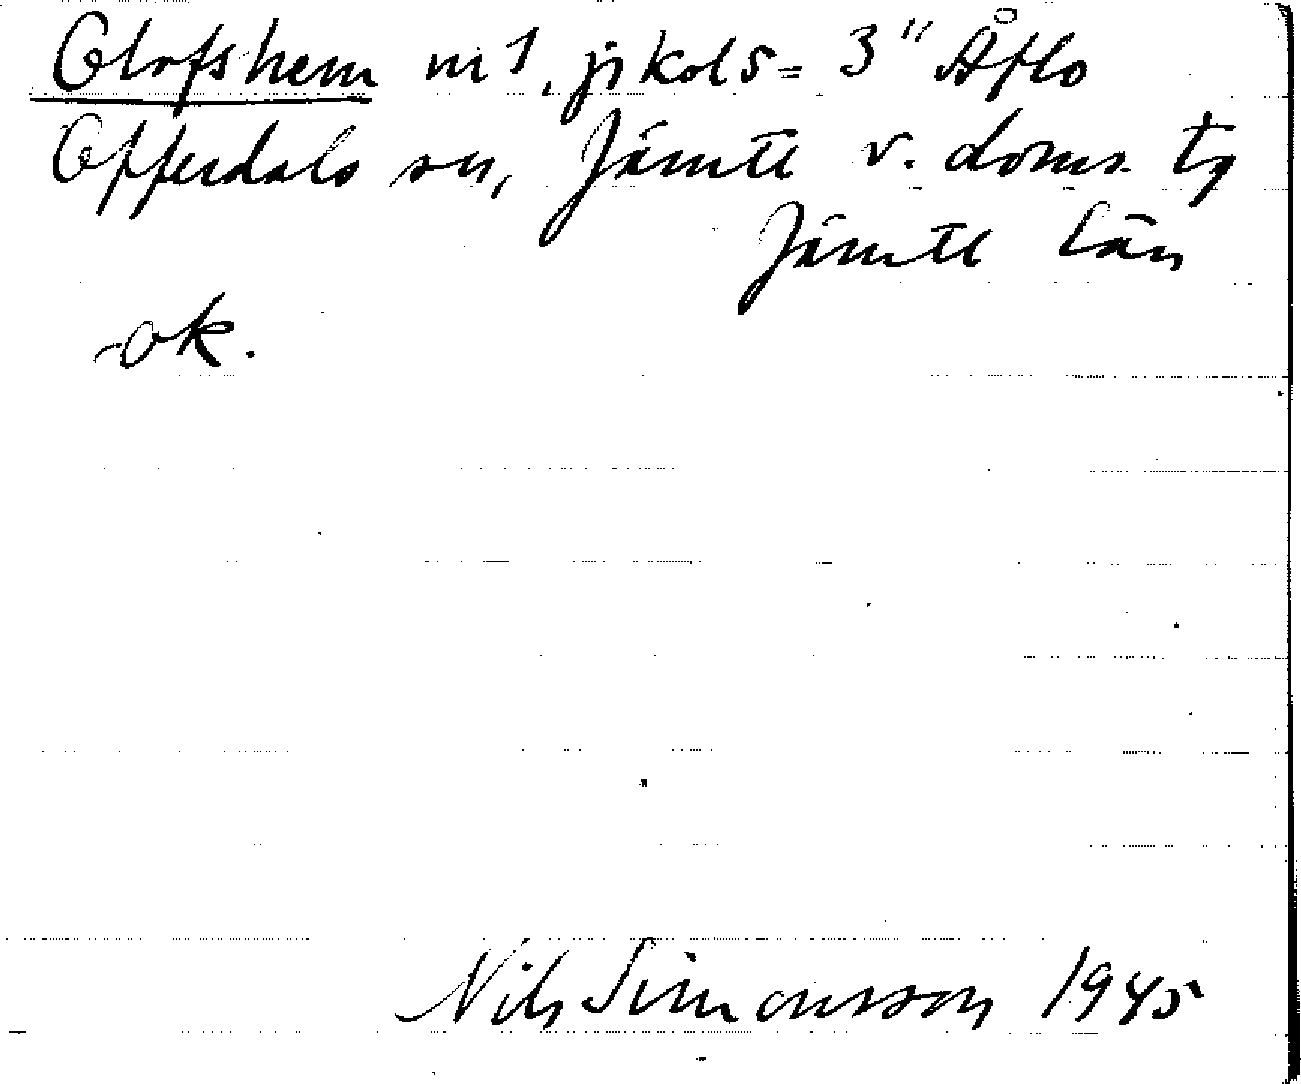 Olofshem nr 1, jikols = 3" Åflo
Offerdals sn, Jämtl v. doms. tg
Jämtl län
ok.
Nils Simonsson 1945